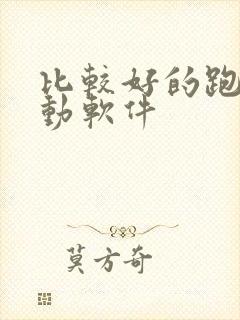 比較好的跑
動軟件
莫方奇